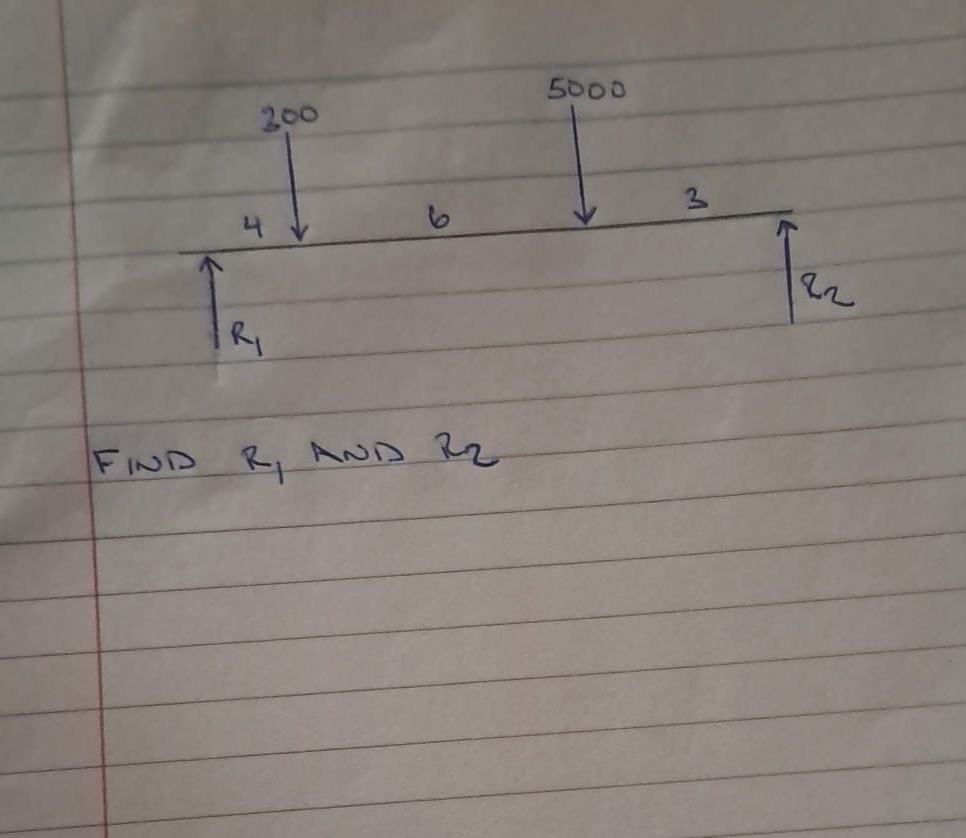 200 5000
4 6 3
R₁ R₂
FIND R₁ AND R₂